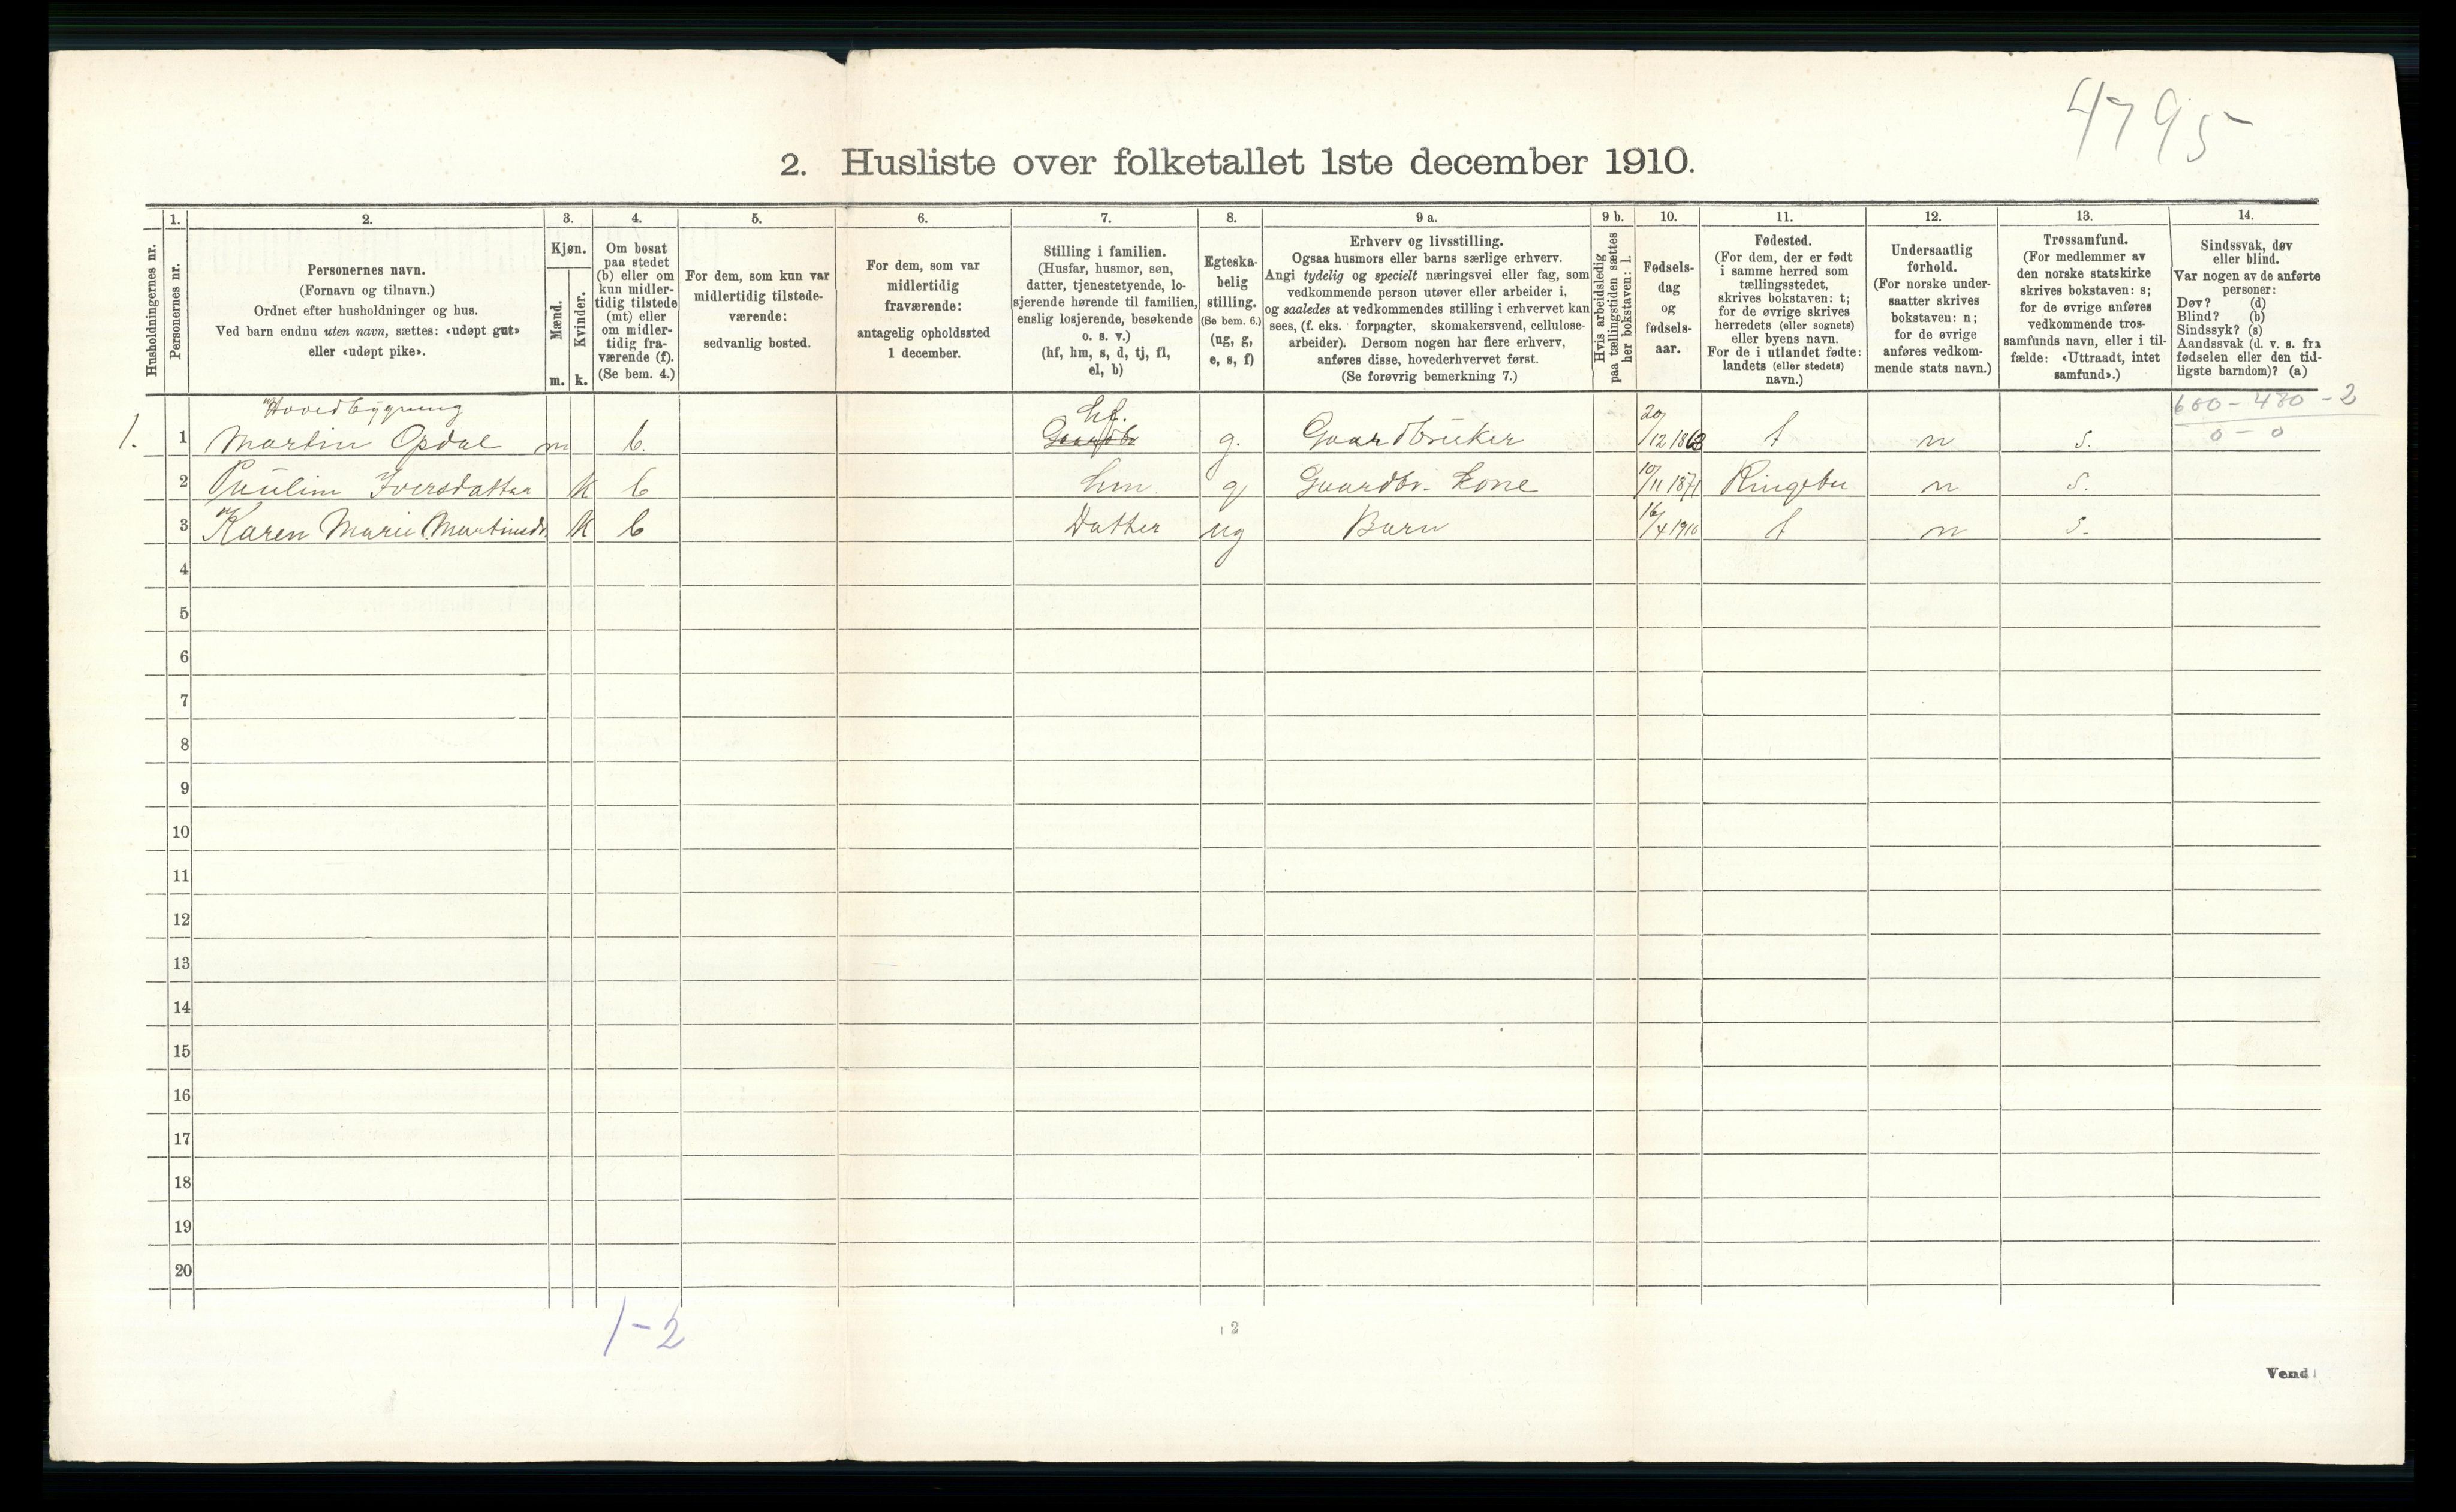 4795
2. Husliste over folketallet 1ste december 1910.
Husholdningernes nr.
1.
Personernes nr.
2.
Personernes navn.
(Fornavn og tilnavn.)
Ordnet efter husholdninger og hus.
Ved barn endnu uten navn, sættes: «udøpt gut»
eller «udøpt pike».
3.
Kjøn.
Mænd.
Kvinder.
m. k.
4.
Om bosat
paa stedet
(b) eller om
kun midler-
tidig tilstede
(mt) eller
om midler-
tidig fra-
værende (f).
(Se bem. 4.)
5.
For dem, som kun var
midlertidig tilstede-
værende:
sedvanlig bosted.
6.
For dem, som var
midlertidig
fraværende:
antagelig opholdssted
1 december.
7.
Stilling i familien.
(Husfar, husmor, søn,
datter, tjenestetyende, lo-
sjerende hørende til familien,
enslig losjerende, besøkende
o. s. v.)
(hf, hm, s, d, tj, fl,
el, b)
8.
Egteska-
belig
stilling.
(Se bem. 6.)
(ug, g,
e, s, f)
9 a.
Erhverv og livsstilling.
Ogsaa husmors eller barns særlige erhverv.
Angi tydelig og specielt næringsvei eller fag, som
vedkommende person utøver eller arbeider i,
og saaledes at vedkommendes stilling i erhvervet kan
sees, (f. eks. forpagter, skomakersvend, cellulose-
arbeider). Dersom nogen har flere erhverv,
anføres disse, hovederhvervet først.
(Se forøvrig bemerkning 7.)
9 b.
Hvis arbeidsledig
paa tællingstiden sættes
her bokstaven: l.
10.
Fødsels-
dag
og
fødsels-
aar.
11.
Fødested.
(For dem, der er født
i samme herred som
tællingsstedet,
skrives bokstaven: t;
for de øvrige skrives
herredets (eller sognets)
eller byens navn.
For de i utlandet fødte:
landets (eller stedets)
navn.)
12.
Undersaatlig
forhold.
(For norske under-
saatter skrives
bokstaven: n;
for de øvrige
anføres vedkom-
mende stats navn.)
13.
Trossamfund.
(For medlemmer av
den norske statskirke
skrives bokstaven: s;
for de øvrige anføres
vedkommende tros-
samfunds navn, eller i til-
fælde: «Uttraadt, intet
samfund».)
14.
Sindssvak, døv
eller blind.
Var nogen av de anførte
personer:
Døv? (d)
Blind? (b)
Sindssyk? (s)
Aandssvak (d. v. s. fra
fødselen eller den tid-
ligste barndom)? (a)
Hovedbygning hf. 600-480-2
1. 1 Martin Opdal m b. Gaardbr g. Gaardbruker 20/12 1863 t n s. 0-0
2 Pauline Iversdatter k b hm g Gaardbr. Kone 10/11 1871 Ringebu n s.
3 Karen Marie Martinsdr. k b Datter ug Barn 16/4 1910 t n s.
4
5
6
7
8
9
10
11
12
13
14
15
16
17
18
19
20
1-2
2
Vend